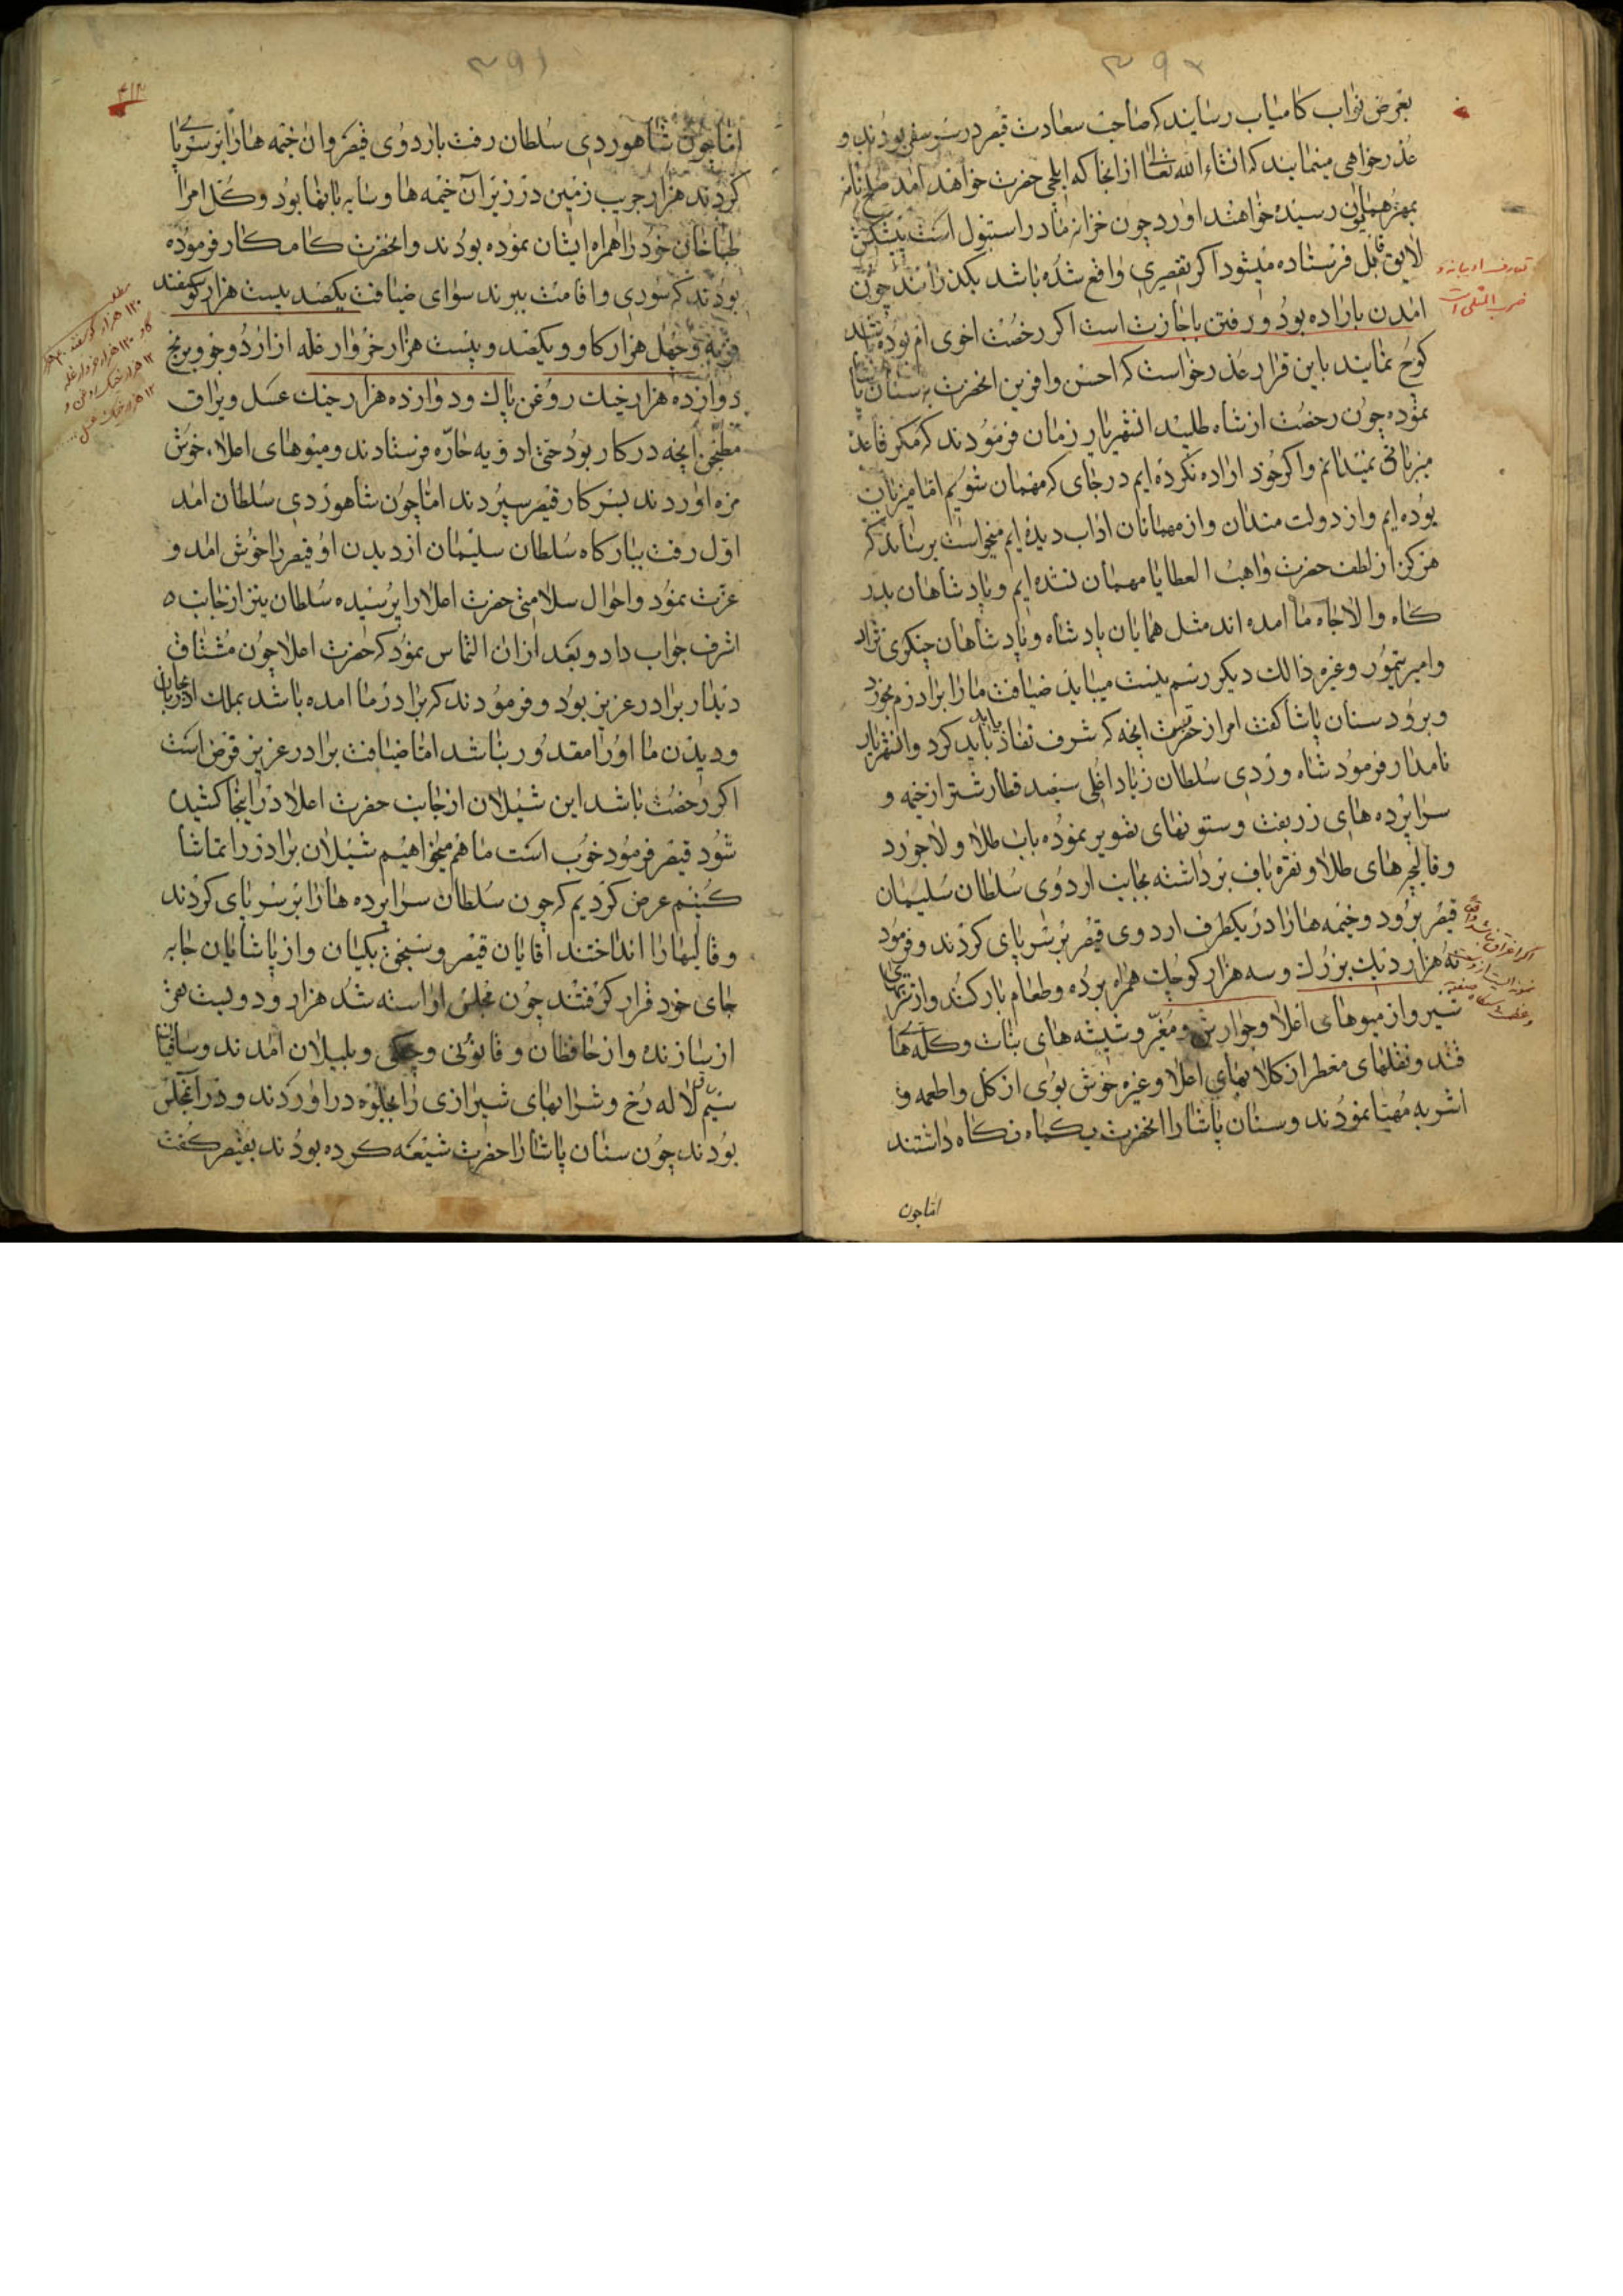 ۳۹۲
بعرض نواب کامیاب رسانید که صاحب سعادت قیصر در سر سفر بودند و
عذر خواهی مینمایند که انشاء الله تعالی از انجا که ایلچی حضرت خواهند امد صلح نامه
بمهر همایون رسیده خواهند اورد چون خزانه ما در استنبول است پیشکش
لایق قابل فرستاده میشود اکر تقصیری واقع شده باشد بکذرانند چون
امدن باراده بود و رفتن باجازت است اکر رخصت اخوی ام بوده باشد
کوچ نمایند باین قرار عذر خواست که احسن وافرین انحضرت به سنان پاشا
نموده چون رخصت از شاه طلبید انشهریار زمان فرمودند که مکر قاعدهٔ
میزبانی نمیدانم واکر خود اراده نکرده ایم در جای که مهمان شویم اما میزبان
بوده ایم واز دولت مندان واز مهمانان اداب دیده ایم میخواست برساند که
هرکز از لطف حضرت واهب العطایا مهمان نشده ایم و پادشاهان بدر
کاه والاجاه ما امده اند مثل همایان پادشاه و پادشاهان چنکری نژاد
وامیر تیمور وغیره ذالک دیکر رسم نیست میباید ضیافت ما را برادرم بخورد
وبرود سنان پاشا کفت امر از حضرتست انچه که شرف نفاذ یابد باید کرد وانشهریار
نامدار فرمود شاه وردی سلطان زیاد اغلی سیصد قطار شتر از خیمه و
سراپرده های زربفت وستونهای تصویر نموده باب طلا و لاجورد
وقالیچه های طلا و نقره باف برداشته بجانب اردوی سلطان سلیمان
قیصر برود وخیمه ها را در یکطرف اردوی قیصر بر سر پای کردند و فرمود
نه هزار دیک بزرک وسه هزار کوچک همراه برده وطعام بار کنند واز تربیتهای
شیر واز میوهای اعلا وجوارش ومغیر وشیشه های نبات وکله های
قند ونقلهای معطر از کلابهای اعلا وغیره خوش بوی از کل واطعمه و
اشربه مهیا نمودند وسنان پاشا را انحضرت یکماه نکاه داشتند
اماچون
ضرب المثلی است
۳۹۱
۴۱۴
اماچون شاهوردی سلطان رفت باردوی قیصر وان خیمه ها را بر سر پا
کردند هزار جریب زمین در زیر آن خیمه ها وسایه بانها بود وکل امرا
طباخان خود را همراه ایشان نموده بودند وانحضرت کامکار فرموده
بودند که سوری واقامت ببرند سوای ضیافت یکصد بیست هزار کوسفند
فربه وچهل هزار کاو ویکصد وبیست هزار خروار غله از ارد وجو وبرنج
دوازده هزار خیک روغن پاک ودوازده هزار خیک عسل ویراق
مطبخی انچه در کار بود حتی ادویه حاره فرستادند ومیوهای اعلاء خوش
مزه اوردند بسرکار قیصر سپردند اما چون شاهوردی سلطان امد
اول رفت ببارکاه سلطان سلیمان از دیدن او قیصر را خوش امد و
عزت نمود واحوال سلامتی حضرت اعلا را پرسیده سلطان نیز از جانب
اشرف جواب داد وبعد ازان التماس نمود که حضرت اعلا چون مشتاق
دیدار برادر عزیز بود وفرمودند که برادر ما امده باشد بملک اذربایجان
ودیدن ما او را مقدور نباشد اما ضیافت برادر عزیز فرض است
اکر رخصت باشد این شیلان از جانب حضرت اعلا در اینجا کشیده
شود قیصر فرمود خوب است ما هم میخواهیم شیلان برادر را تماشا
کنیم عرض کردیم که چون سلطان سراپرده ها را بر سر پای کردند
وقالیها را انداختند اقایان قیصر وسنجق بکیان واز پاشایان جابه
جای خود قرار کرفتند چون مجلس اراسته شد هزار ودویست نفر
از سازنده واز حافظان وقانونی وچنکی وبلبلان امدند وساقیان
سیم ساق لاله رخ وشرابهای شیرازی را بجلوه در اوردند ودر آنمجلس
بودند چون سنان پاشا را حضرت شیعه کرده بودند بقیصر کفت
۱۲۰ هزار کوسفند ۴۰ هزار
کاو ۱۲۰ هزار خروار غله
۱۲ هزار خیک روغن و
۱۲ هزار خیک عسل